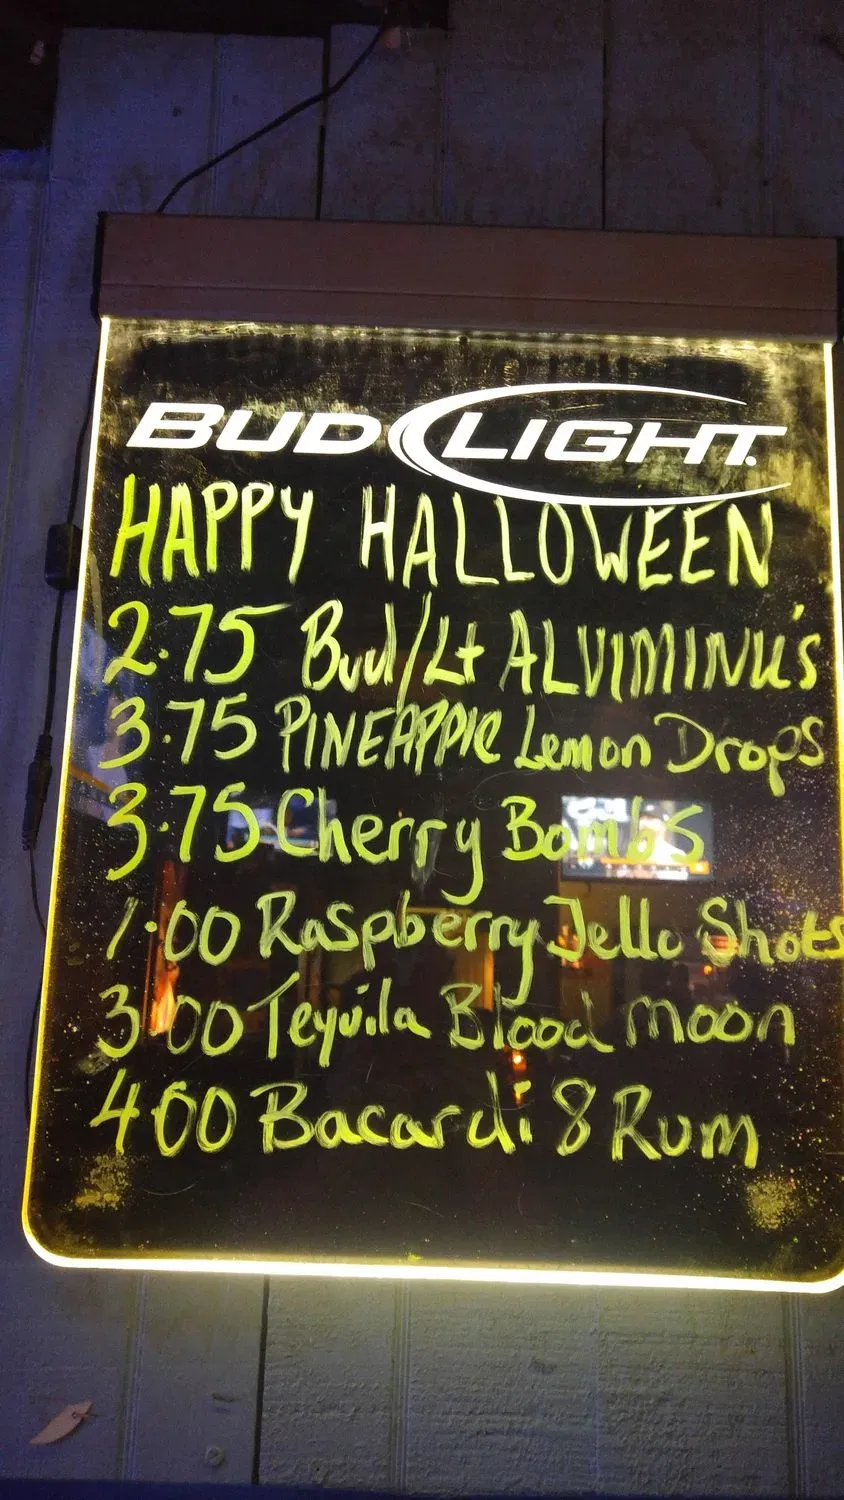 BUD LIGHT.
HAPPY HALLOWEEN
2.75 Bud/Lt ALUIMINU's
3.75 PINEAPPlE Lemon Drops
3.75 Cherry Bombs
1.00 Raspberry Jello Shots
3.00 Tequila Blood moon
4.00 Bacardi 8 Rum